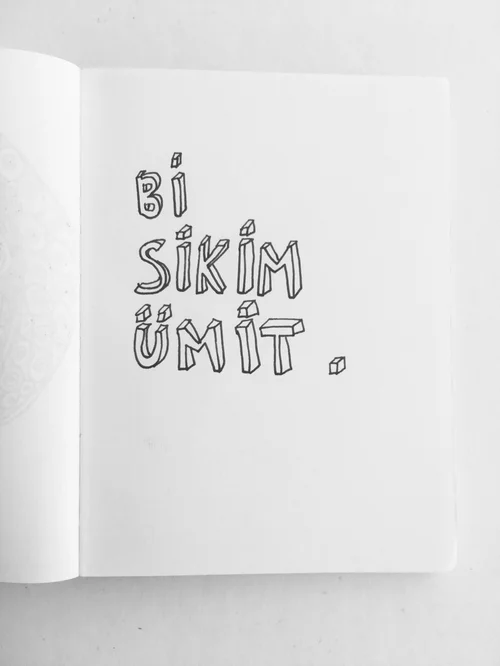 Bİ
SİKİM
ÜMİT .